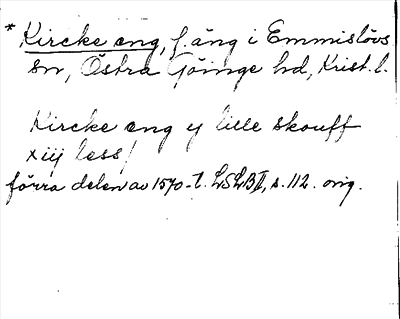 * Kircke eng, f. äng i Emmislövs
sn, Östra Göinge hd, Krist. l.
Kircke eng y lille skouff
xiij less/
förra delen av 1570-t. LSLB II, s. 112. orig.